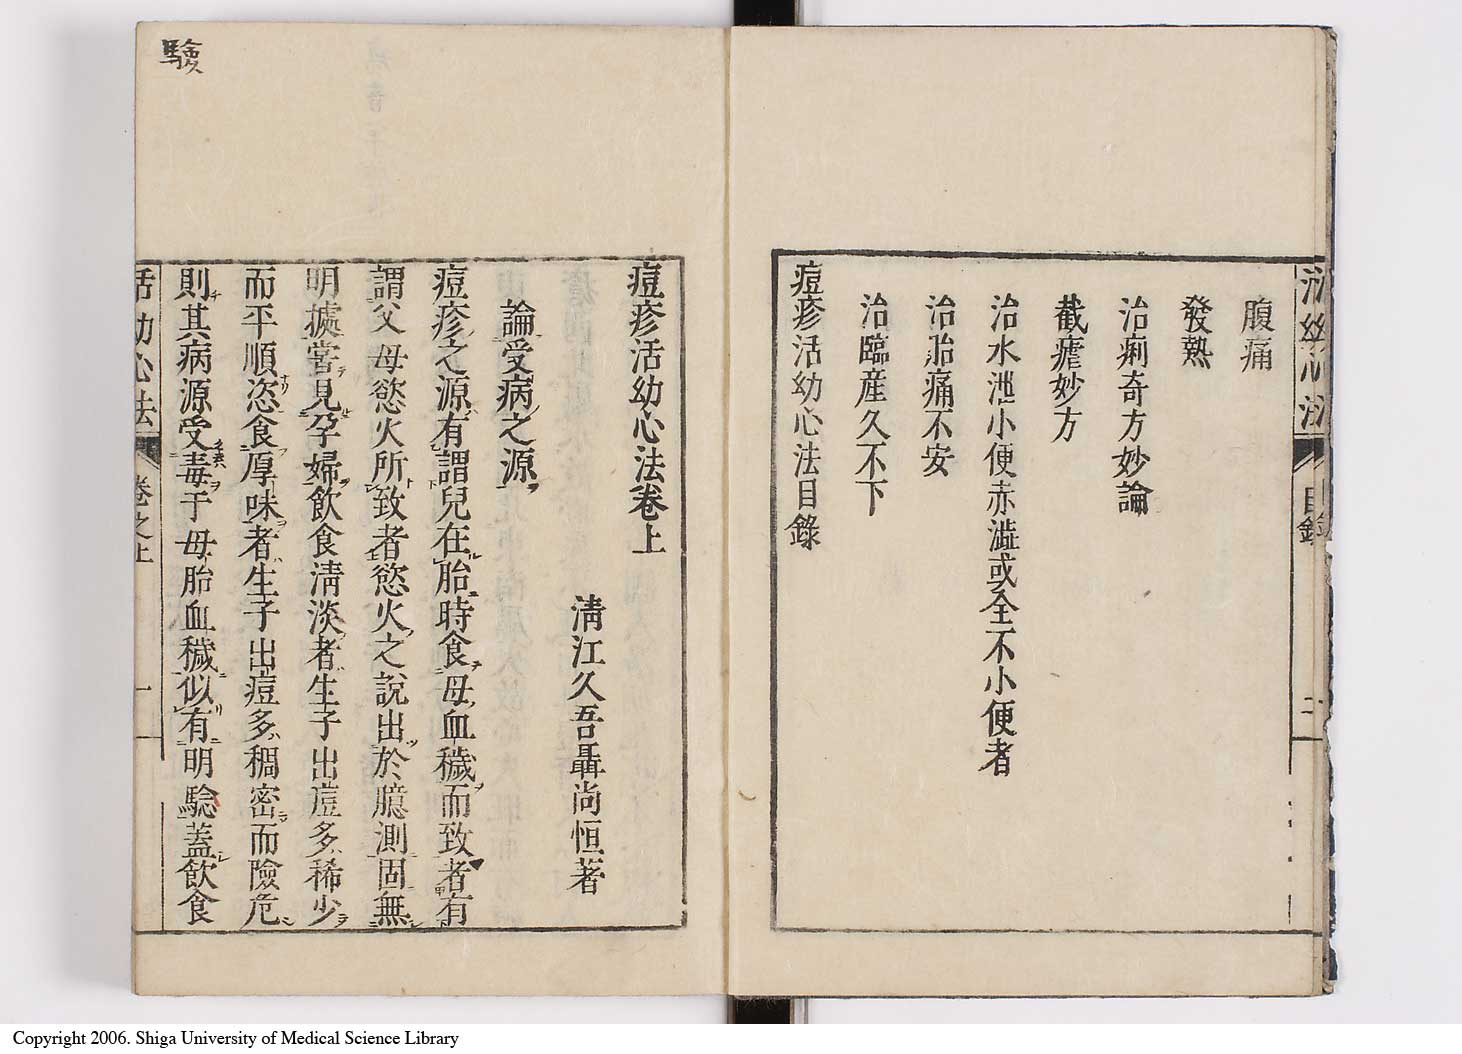 活幼心法 目錄 二
腹痛
發熱
治痢奇方妙論
截瘧妙方
治水泄小便赤澁或全不小便者
治胎痛不安
治臨産久不下
痘疹活幼心法目錄
痘疹活幼心法卷上
清江久吾聶尚恒著
論受病之源
痘疹之源有謂兒在胎時食母血穢而致者有
謂父母慾火所致者慾火之說出於臆測固無
明據甞見孕婦飲食淸淡者生子出痘多稀少
而平順恣食厚味者生子出痘多稠密而險危
則其病源受毒于母胎血穢似有明騐蓋飲食
活幼心法 卷之上 一
驗
Copyright 2006. Shiga University of Medical Science Library